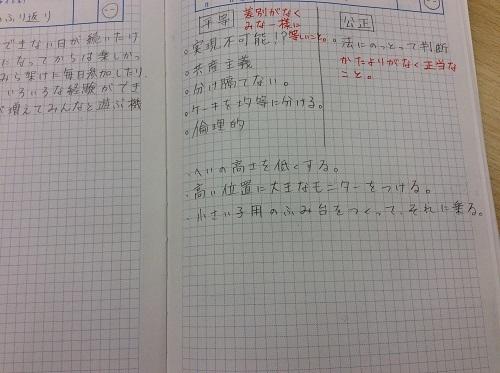 ふり返り
できない日が続いたけ
になってからは楽しかっ
毎日参加したり、
いろいろな経験ができ
増えてみんなと遊ぶ機
平等
差別がなく
みな一様に
等しいこと。
・実現不可能!?
・共産主義
・分け隔てない。
・ケーキを均等に分ける。
・倫理的
公正
・法にのっとって判断
かたよりがなく正当な
こと。
・へいの高さを低くする。
・高い位置に大きなモニターをつける。
・小さい子用のふみ台をつくって、それに乗る。